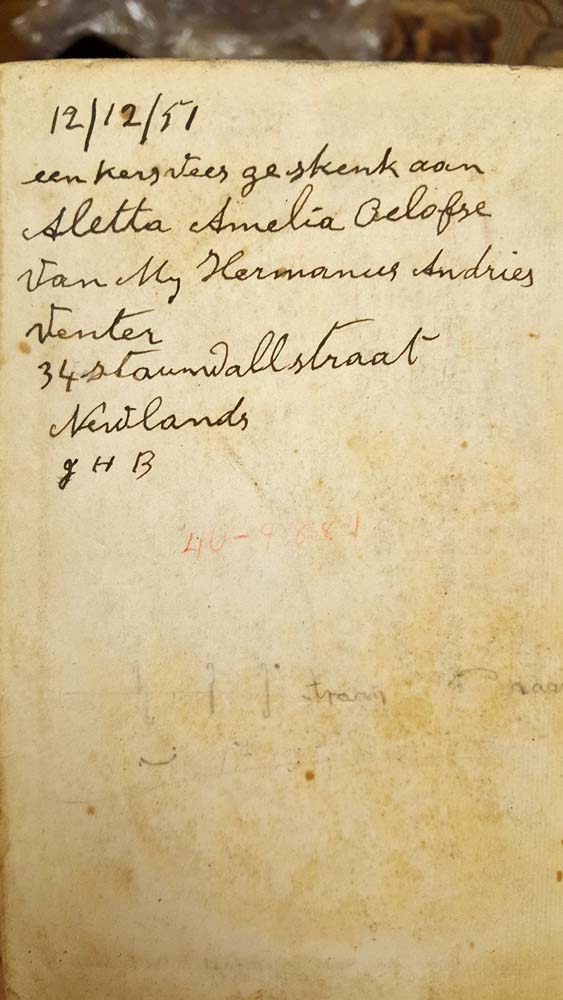 12/12/51
een kersvees geskenk aan
Aletta Amelia Oelofse
Van My Hermanus Andries
Venter
34 straat
Newlands
J H B
40-9881